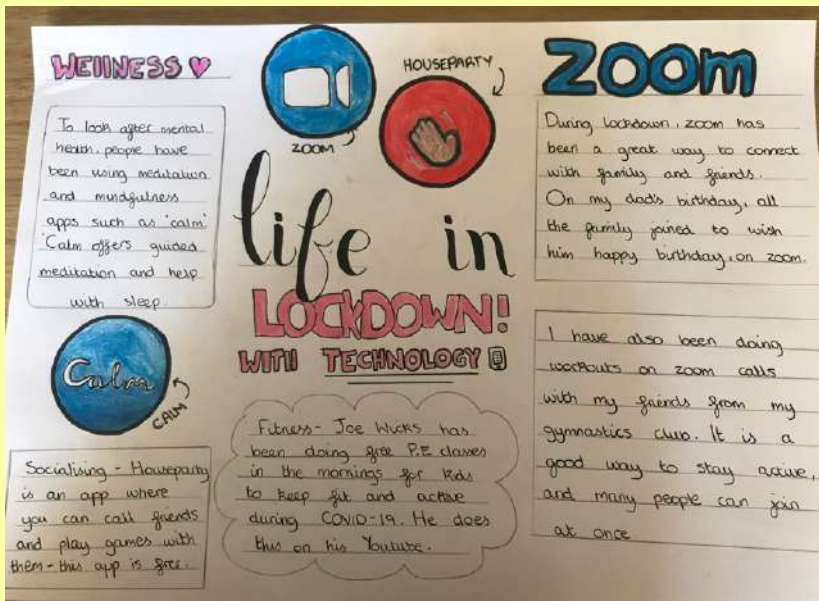 WELLNESS
To look after mental
health, people have
been using meditation
and mindfulness
apps such as 'calm'
'Calm offers guided
meditation and help
with sleep.
Calm
CALM
Socialising - Houseparty
is an app where
you can call friends
and play games with
them - this app is free.
ZOOM
HOUSEPARTY
life in
LOCKDOWN!
WITH TECHNOLOGY
Fitness - Joe Wicks has
been doing free P.E classes
in the mornings for kids
to keep fit and active
during COVID-19. He does
this on his Youtube.
ZOOM
During lockdown, zoom has
been a great way to connect
with family and friends.
On my dad's birthday, all
the family joined to wish
him happy birthday, on zoom.
I have also been doing
workouts on zoom calls
with my friends from my
gymnastics club. It is a
good way to stay active,
and many people can join
at once